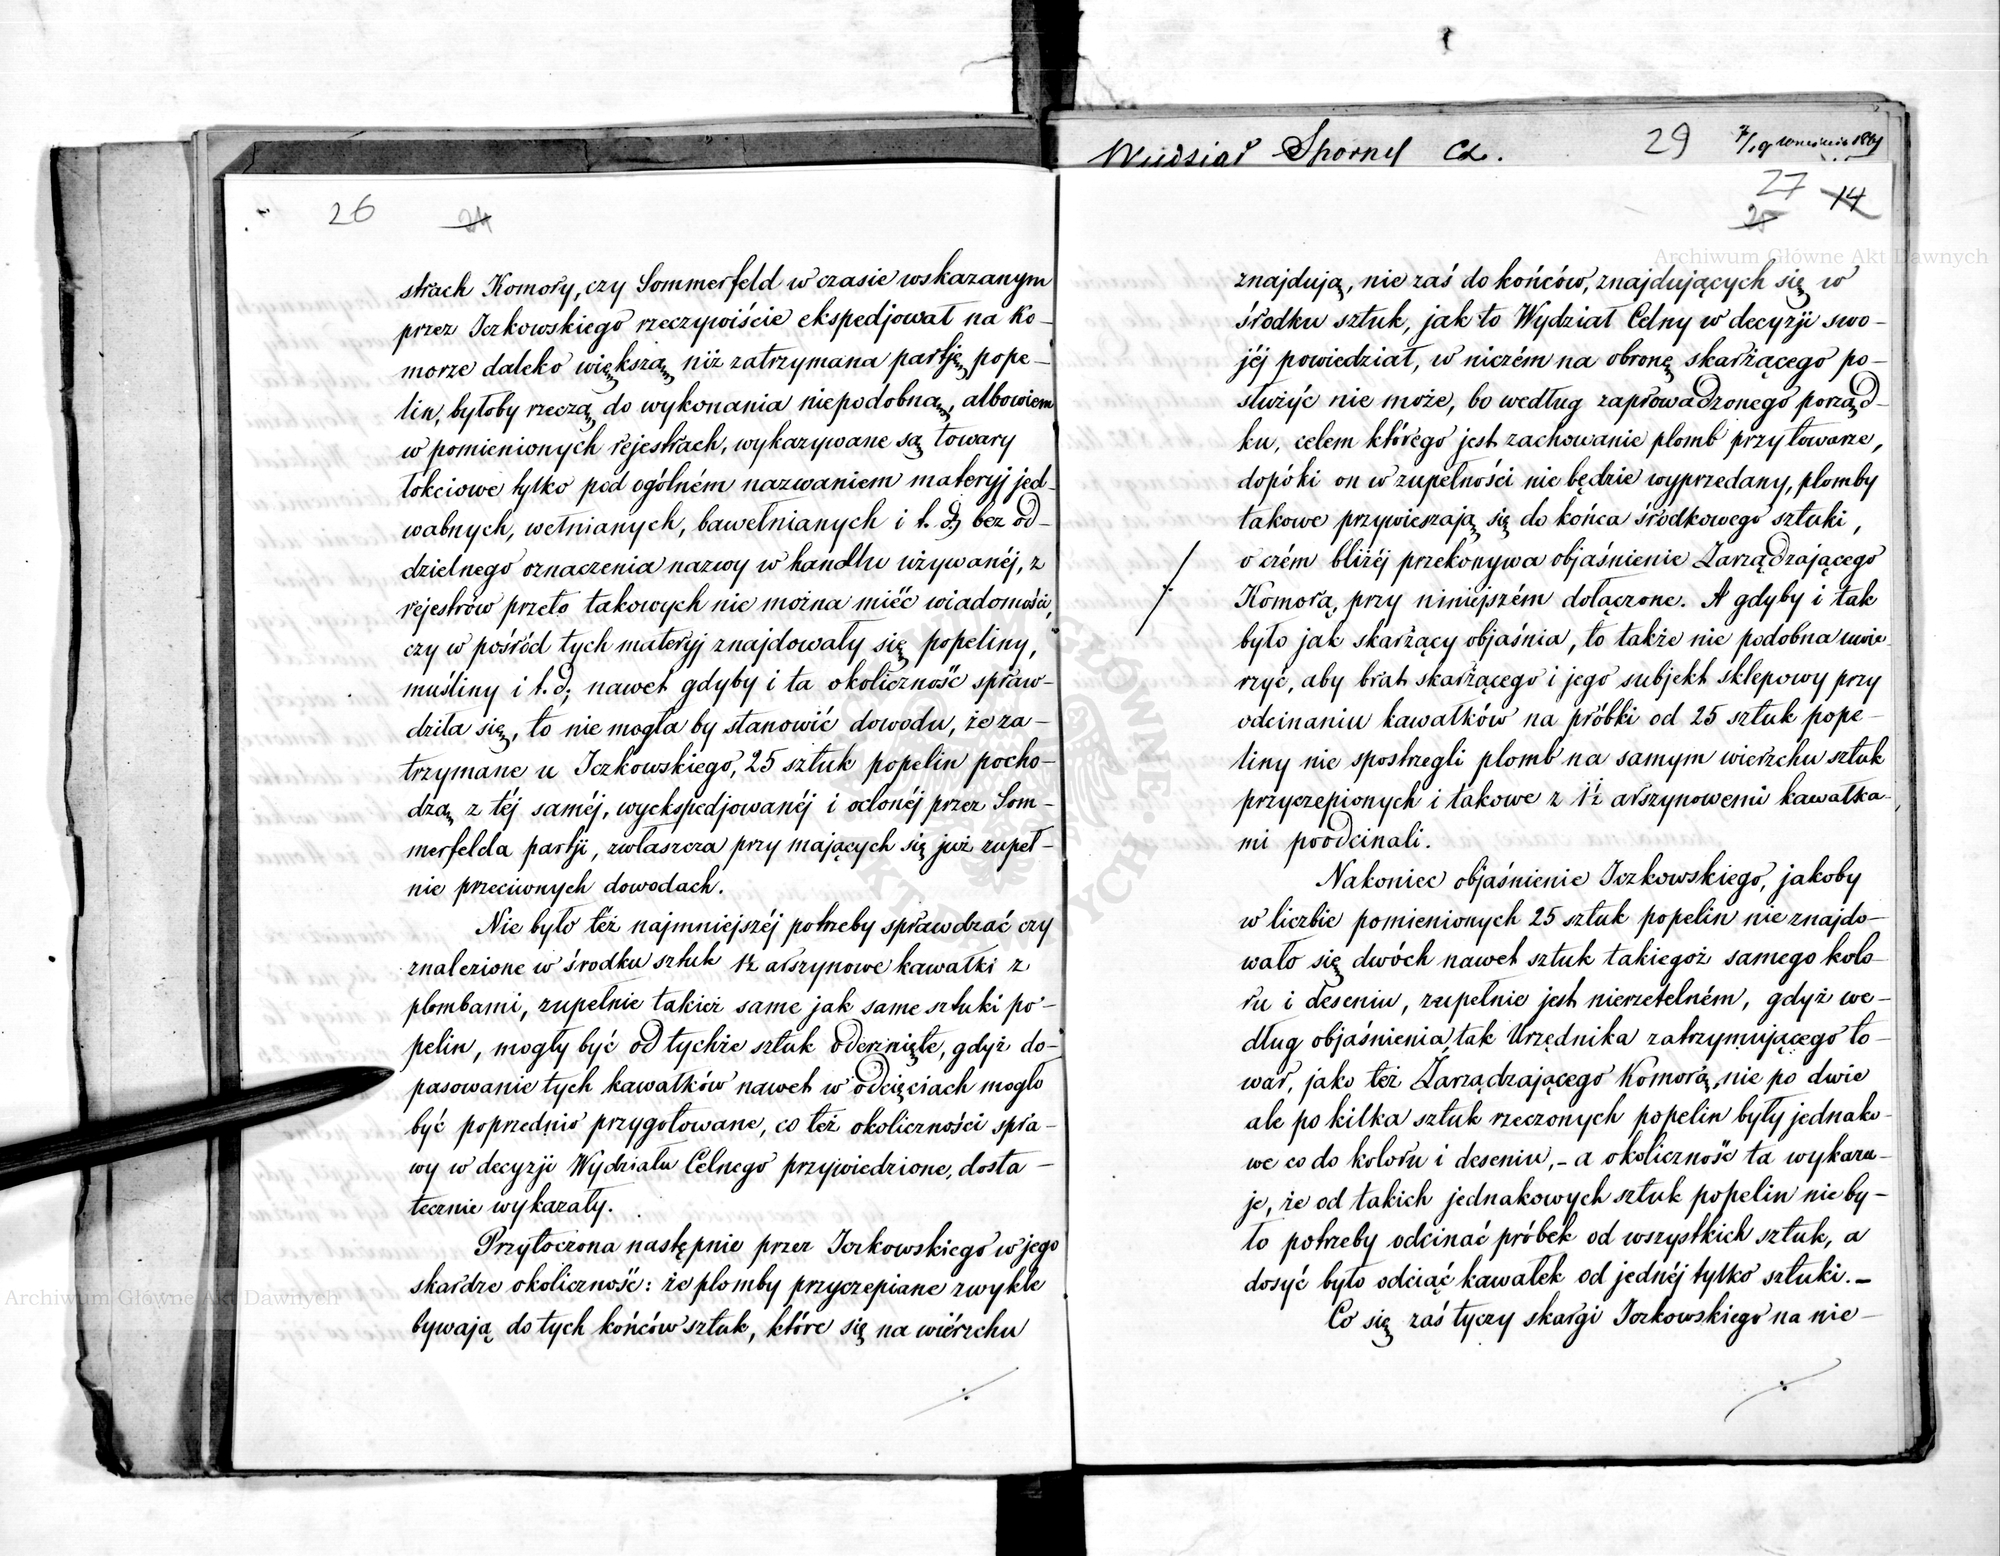 26
24
strach Komory, czy Sommerfeld w czasie wskazanym
przez Iczkowskiego rzeczywiście ekspedjował na Ko-
morze daleko większą niż zatrzymana partję pope-
lin, byłoby rzeczą do wykonania niepodobną, albowiem
w pomienionych rejestrach, wykazywane są towary
łokciowe tylko pod ogólném nazwaniem materyj jed-
wabnych, wełnianych, bawełnianych i t. d, bez od-
dzielnego oznaczenia nazwy w handlu używanéj, z
rejestrów przeto takowych nie można mieć wiadomości,
czy w pośród tych materyj znajdowały się popeliny,
muśliny i t. d; nawet gdyby i ta okoliczność spraw-
dziła się, to nie mogła by stanowić dowodu, że za-
trzymane u Iczkowskiego, 25 sztuk popelin pocho-
dzą z téj saméj, wyekspedjowanéj i oclonéj przez Som-
merfelda partji, zwłaszcza przy mających się już zupeł-
nie przeciwnych dowodach.
Nie było téż najmniejszéj potrzeby sprawdzać czy
znalezione w środku sztuk 1½ arszynowe kawałki z
plombami, zupełnie takież same jak same sztuki po-
pelin, mogły być od tychże sztuk oderznięte, gdyż do-
pasowanie tych kawałków nawet w odcięciach mogło
być poprzednio przygotowane, co też okoliczności spra-
wy w decyzji Wydziału Celnego przywiedzione, dosta-
tecznie wykazały.
Przytoczona następnie przez Iczkowskiego w jego
skardze okoliczność: że plomby przyczepiane zwykle
bywają do tych końców sztuk, które się na wiérzchu
Wydział Sporny Cł.
29
27
25
14
znajdują, nie zaś do końców, znajdujących się w
środku sztuk, jak to Wydział Celny w decyzji swo-
jéj powiedział, w niczém na obronę skarżącego po-
służyć nie może, bo według zaprowadzonego porząd-
ku, celem którego jest zachowanie plomb przy towarze,
dopóki on w zupełności nie będzie wyprzedany, plomby
takowe przywieszają się do końca środkowego sztuki,
o czém bliżéj przekonywa objaśnienie Zarządzającego
Komorą, przy niniejszém dołączone. A gdyby i tak
było jak skarżący objaśnia, to także nie podobna uwie-
rzyć, aby brat skarżącego i jego subjekt sklepowy przy
odcinaniu kawałków na próbki od 25 sztuk pope-
liny nie spostrzegli plomb na samym wierzchu sztuk
przyczepionych i takowe z 1½ arszynowemi kawałka-
mi poodcinali.
Nakoniec objaśnienie Iczkowskiego, jakoby
w liczbie pomienionych 25 sztuk popelin nie znajdo-
wało się dwóch nawet sztuk takiegoż samego kolo-
ru i deseniu, zupełnie jest nierzetelném, gdyż we-
dług objaśnienia tak Urzędnika zatrzymującego to-
war, jako też Zarządzającego Komorą, nie po dwie
ale po kilka sztuk rzeczonych popelin były jednako-
we co do koloru i deseniu, - a okoliczność ta wykazu-
je, że od takich jednakowych sztuk popelin nie by-
ło potrzeby odcinać próbek od wszystkich sztuk, a
dosyć było odciąć kawałek od jednéj tylko sztuki. -
Co się zaś tyczy skargi Iczkowskiego na nie-
Archiwum Główne Akt Dawnych
Archiwum Główne Akt Dawnych